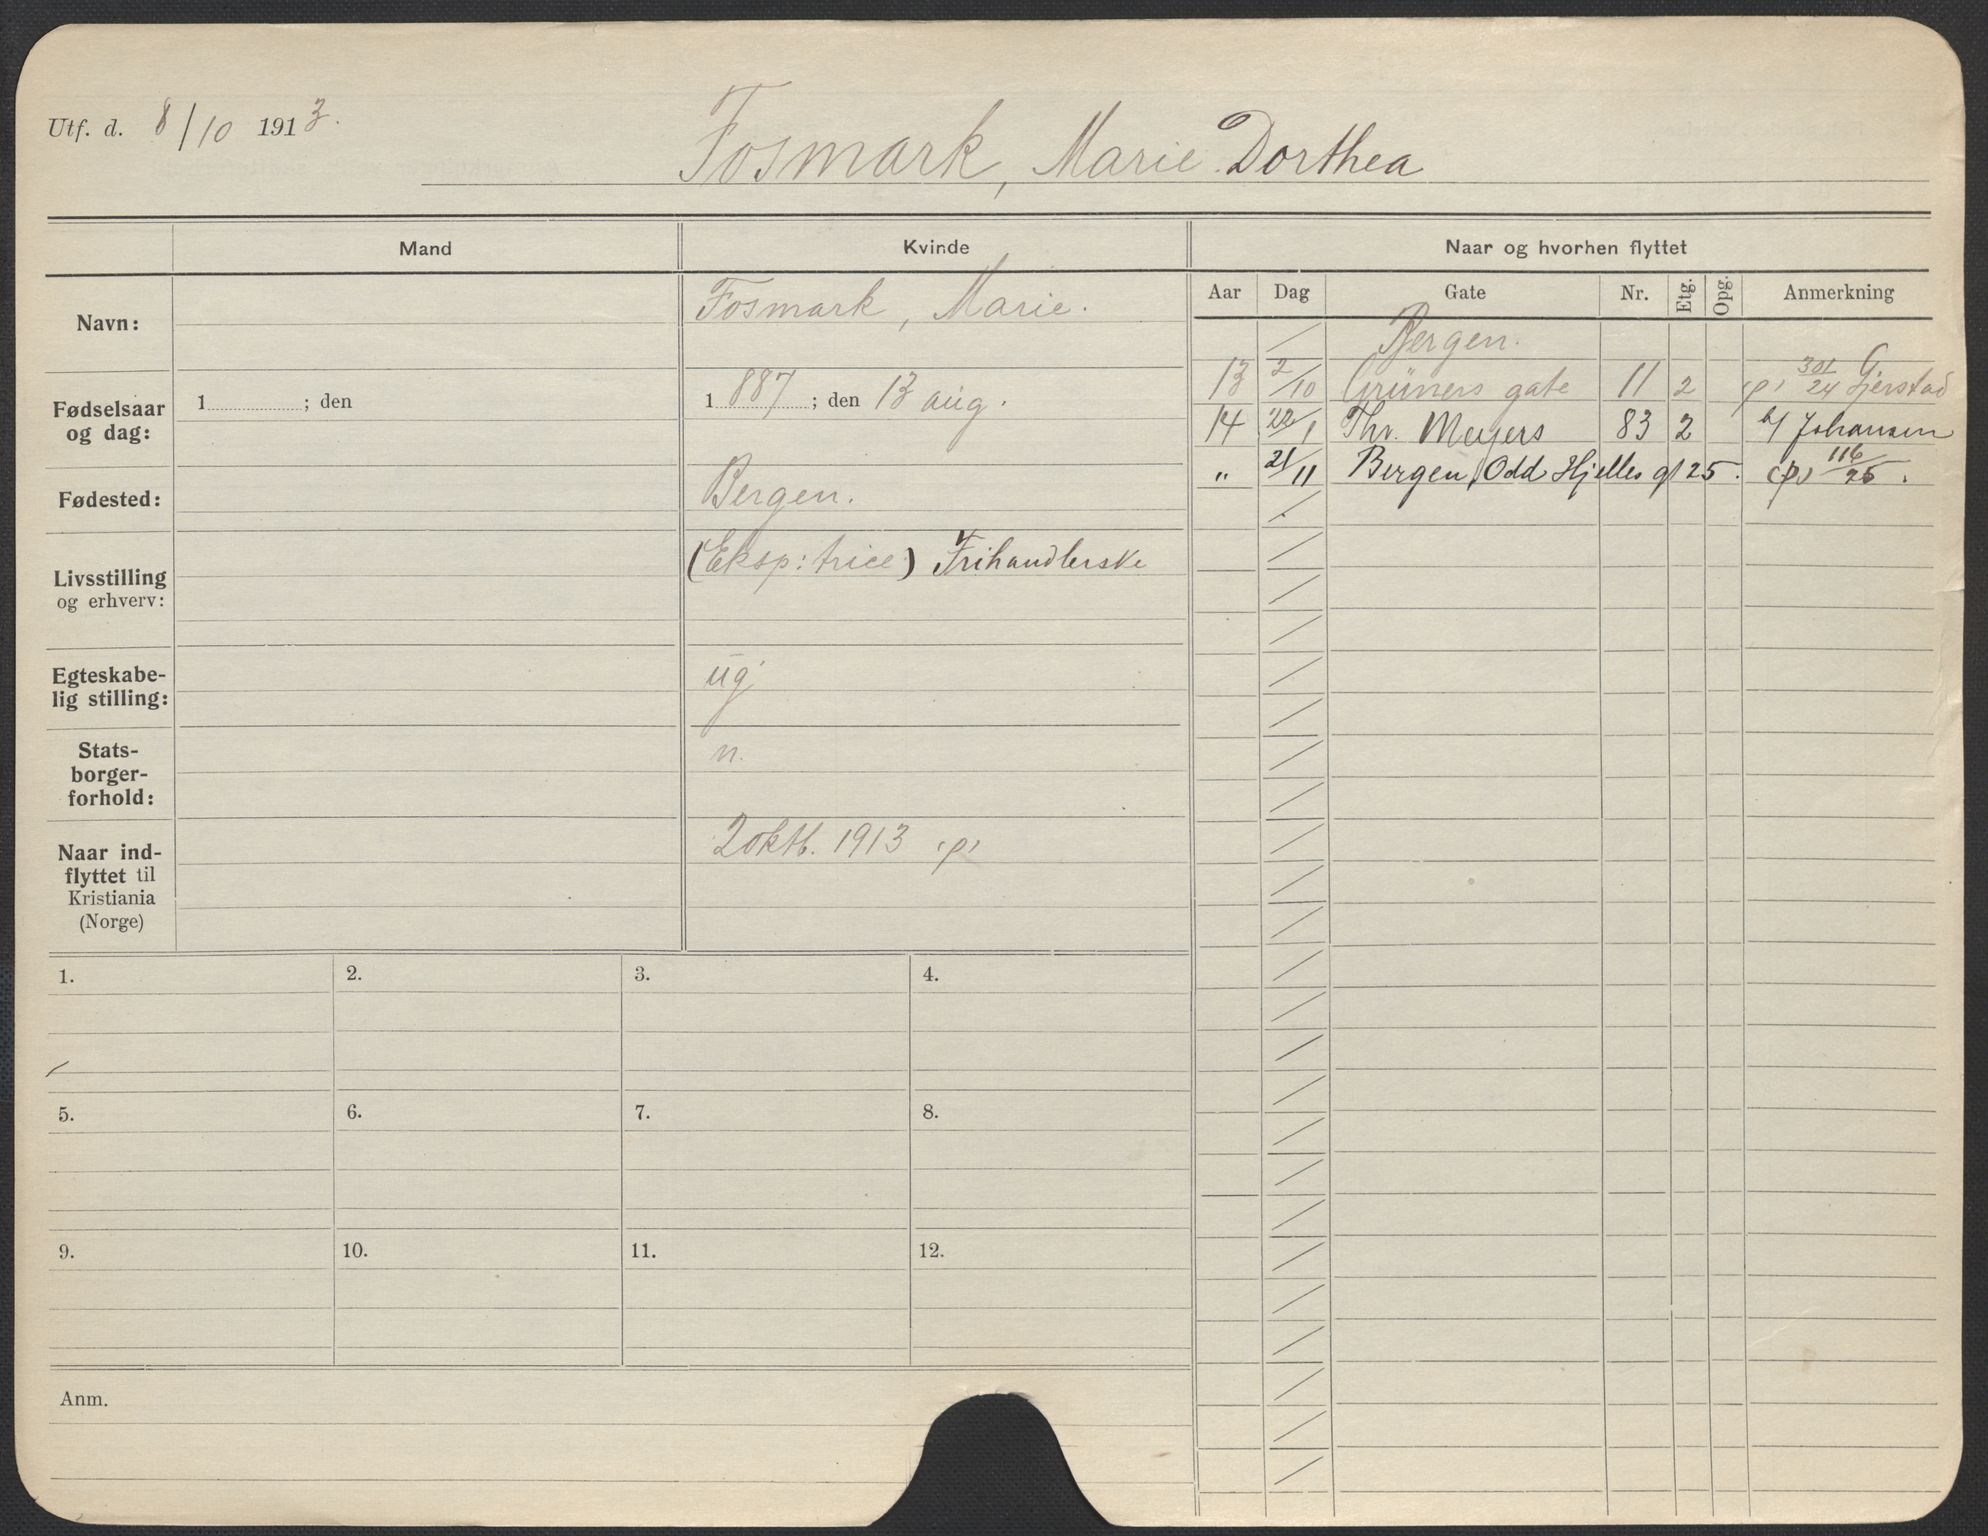 Utf. d. 8/10 1913.
Fosmark, Marie Dorthea
Mand
Kvinde
Naar og hvorhen flyttet
Aar Dag Gate Nr. Etg. Opg. Anmerkning
Navn:
Fosmark, Marie.
Fødselsaar og dag:
1 ; den
1887; den 13 aug.
Fødested:
Bergen.
Livsstilling og erhverv:
(Eksp: trice) Frihandlerske
Egteskabe-
lig stilling:
ug
Stats-
borger-
forhold:
n.
Naar ind-
flyttet til
Kristiania
(Norge)
2 oktb. 1913 (p)
/ Bergen.
13 2/10 Grüners gate 11 2 (p) 301/24 Gjerstad
14 22/1 Thv. Meyers 83 2 b/ Johansen
" 21/11 Bergen, Odd Hjelles gt 25. (p) 116/25.
1. 2. 3. 4.
5. 6. 7. 8.
9. 10. 11. 12.
Anm.